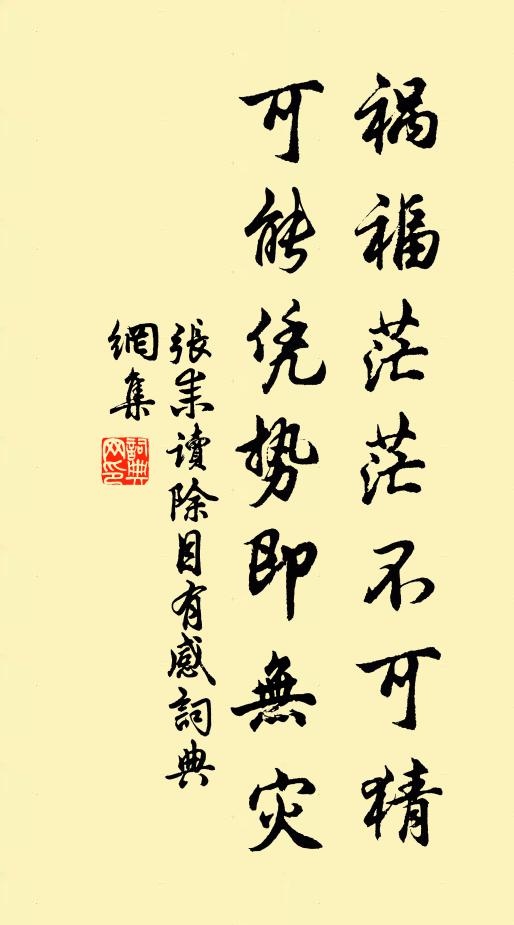 祸福茫茫不可猜
可能凭势即無灾
張耒讀除目有感詞典
網集
詞典
网印